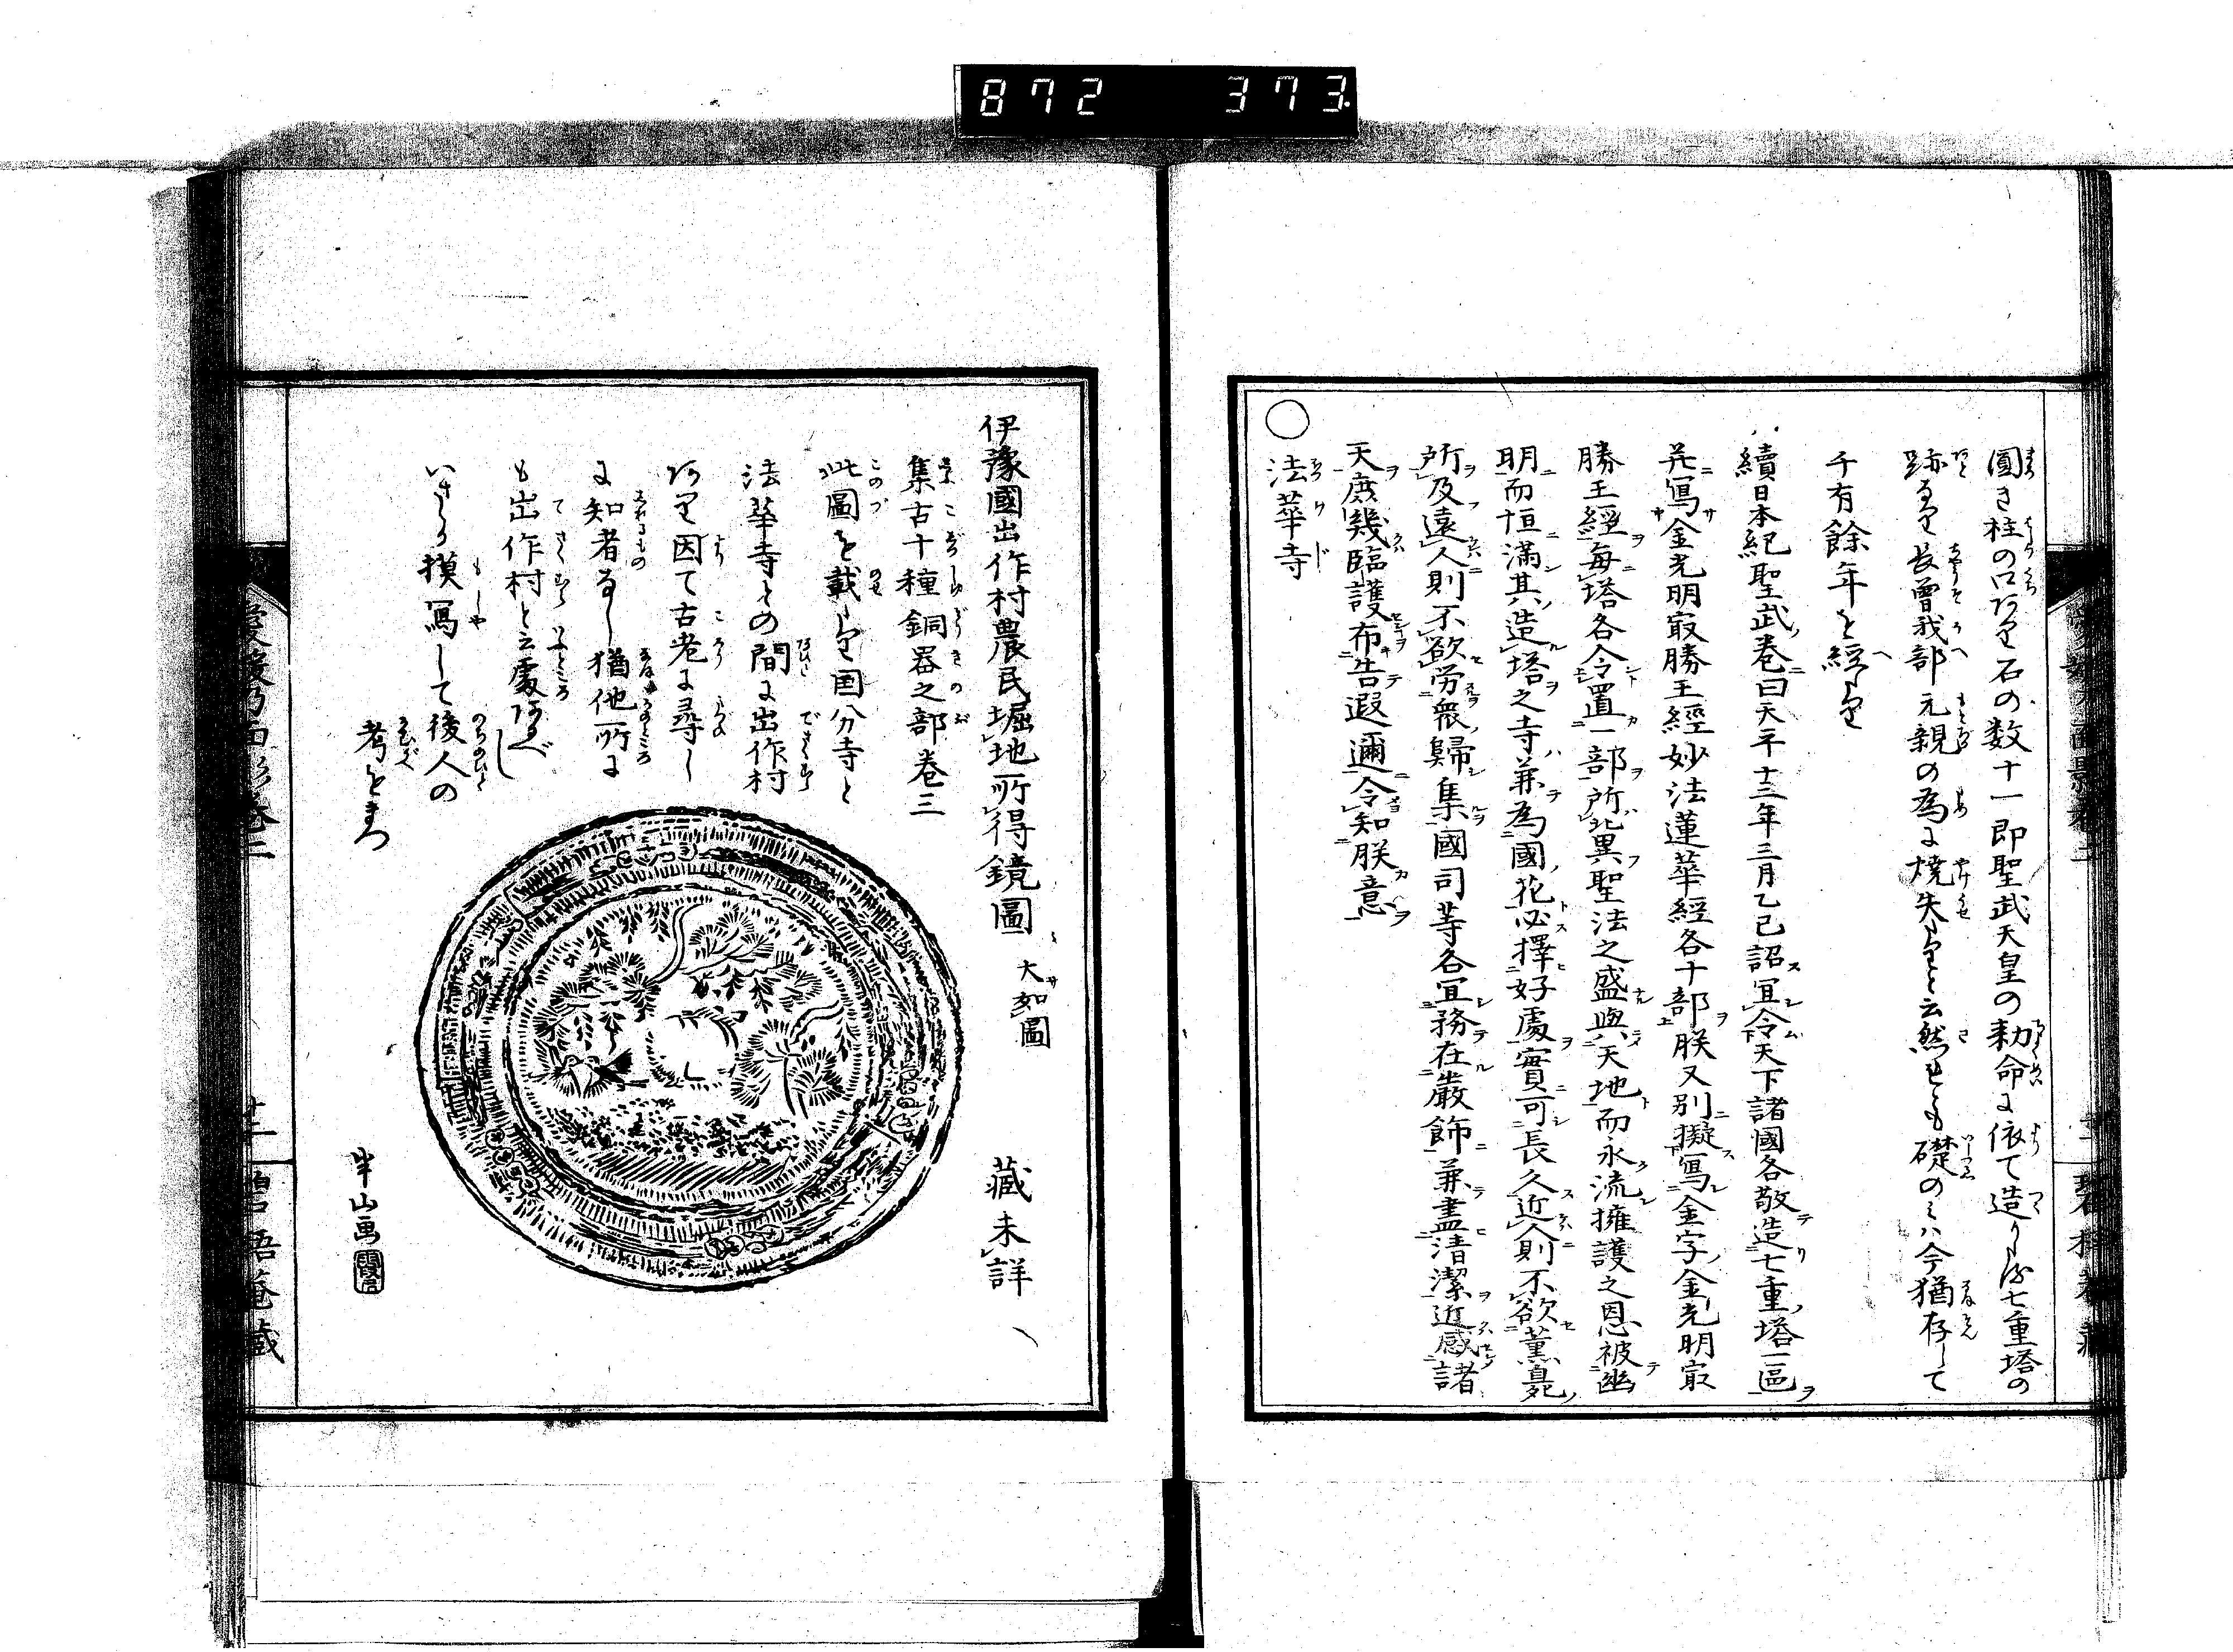 872 373.
圓き柱の口阿里石の数十一即聖武天皇の勅命に依て造りたる七重塔の
跡なり長曽我部元親の為に焼失たりと云然れども礎のミハ今猶存して
千有餘年を經たり
續日本紀聖武巻曰天平十三年三月乙巳詔冝令天下諸國各敬造七重塔一區
并寫金光明㝡勝王經妙法蓮華經各十部朕又別擬寫金字金光明㝡
勝王經毎塔各令置一部所兾聖法之盛與天地而永流擁護之恩被幽
明而恒滿其造塔之寺兼為國花必擇好處實可長久近人則不欲薫臰
所及遠人則不欲労衆歸集國司等各冝務在嚴飾兼盡清潔近感諸
天庶幾臨護布告遐邇令知朕意
○法華寺
伊豫國出作村農民堀地所得鏡圖 大如圖 藏未詳
集古十種銅器之部巻三
此圖を載たり国分寺と
法華寺との間に出作村
阿里因て古老に尋し
に知者なし猶他所に
も出作村と云處阿るべし
いさゝか摸寫して後人の
考をまつ
半山画
愛媛乃面影巻二
碧梧菴藏